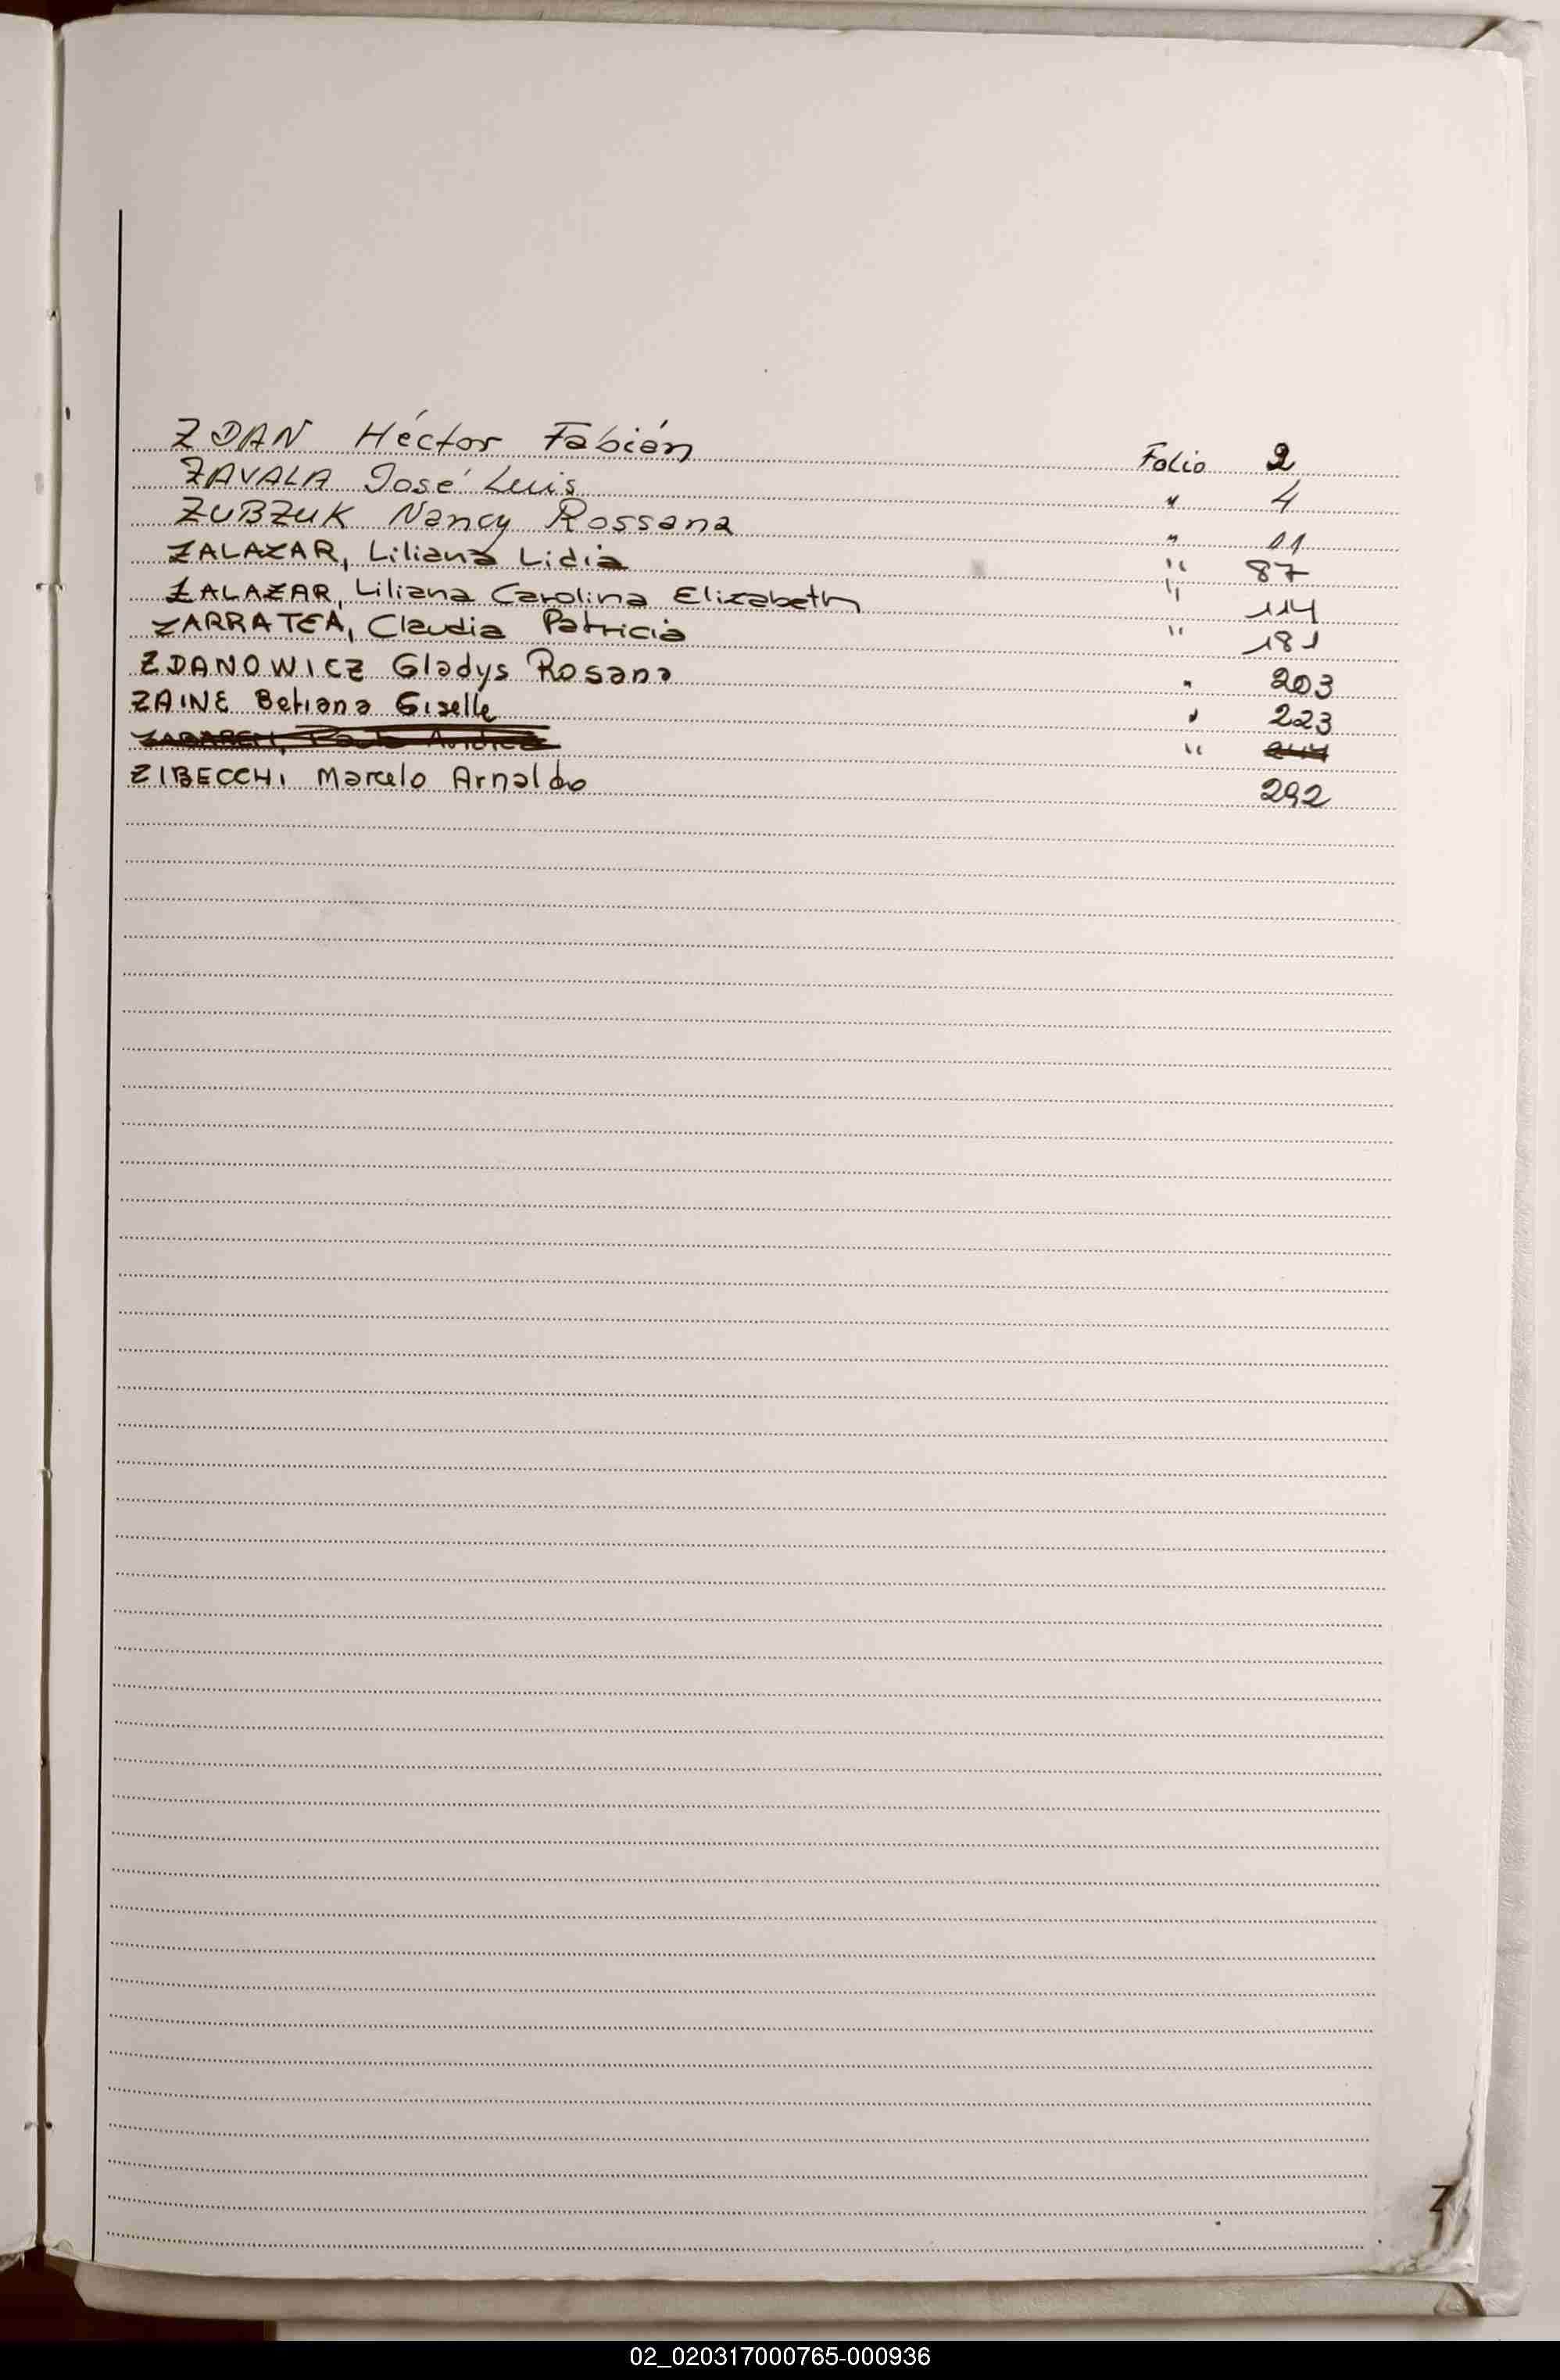 ZDAN Héctor Fabián Folio 2
ZAVALA José Luis " 4
ZUBZUK Nancy Rossana " 11
ZALAZAR, Liliana Lidia " 87
ZALAZAR, Liliana Carolina Elizabeth " 114
ZARRATEA, Claudia Patricia " 181
ZDANOWICZ Gladys Rosana " 203
ZAINE Betiana Giselle " 223
"
ZIBECCHI Marcelo Arnaldo 292
Z
02_020317000765-000936